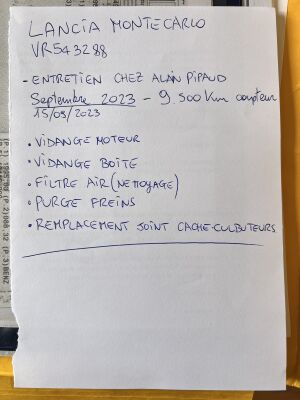 LANCIA MONTECARLO
VR543288
- ENTRETIEN CHEZ ALAIN PIPAUD
Septembre 2023 - 9.500 Km compteur
15/09/2023
• VIDANGE MOTEUR
• VIDANGE BOITE
• FILTRE AIR (NETTOYAGE)
• PURGE FREINS
• REMPLACEMENT JOINT CACHE-CULBUTEURS